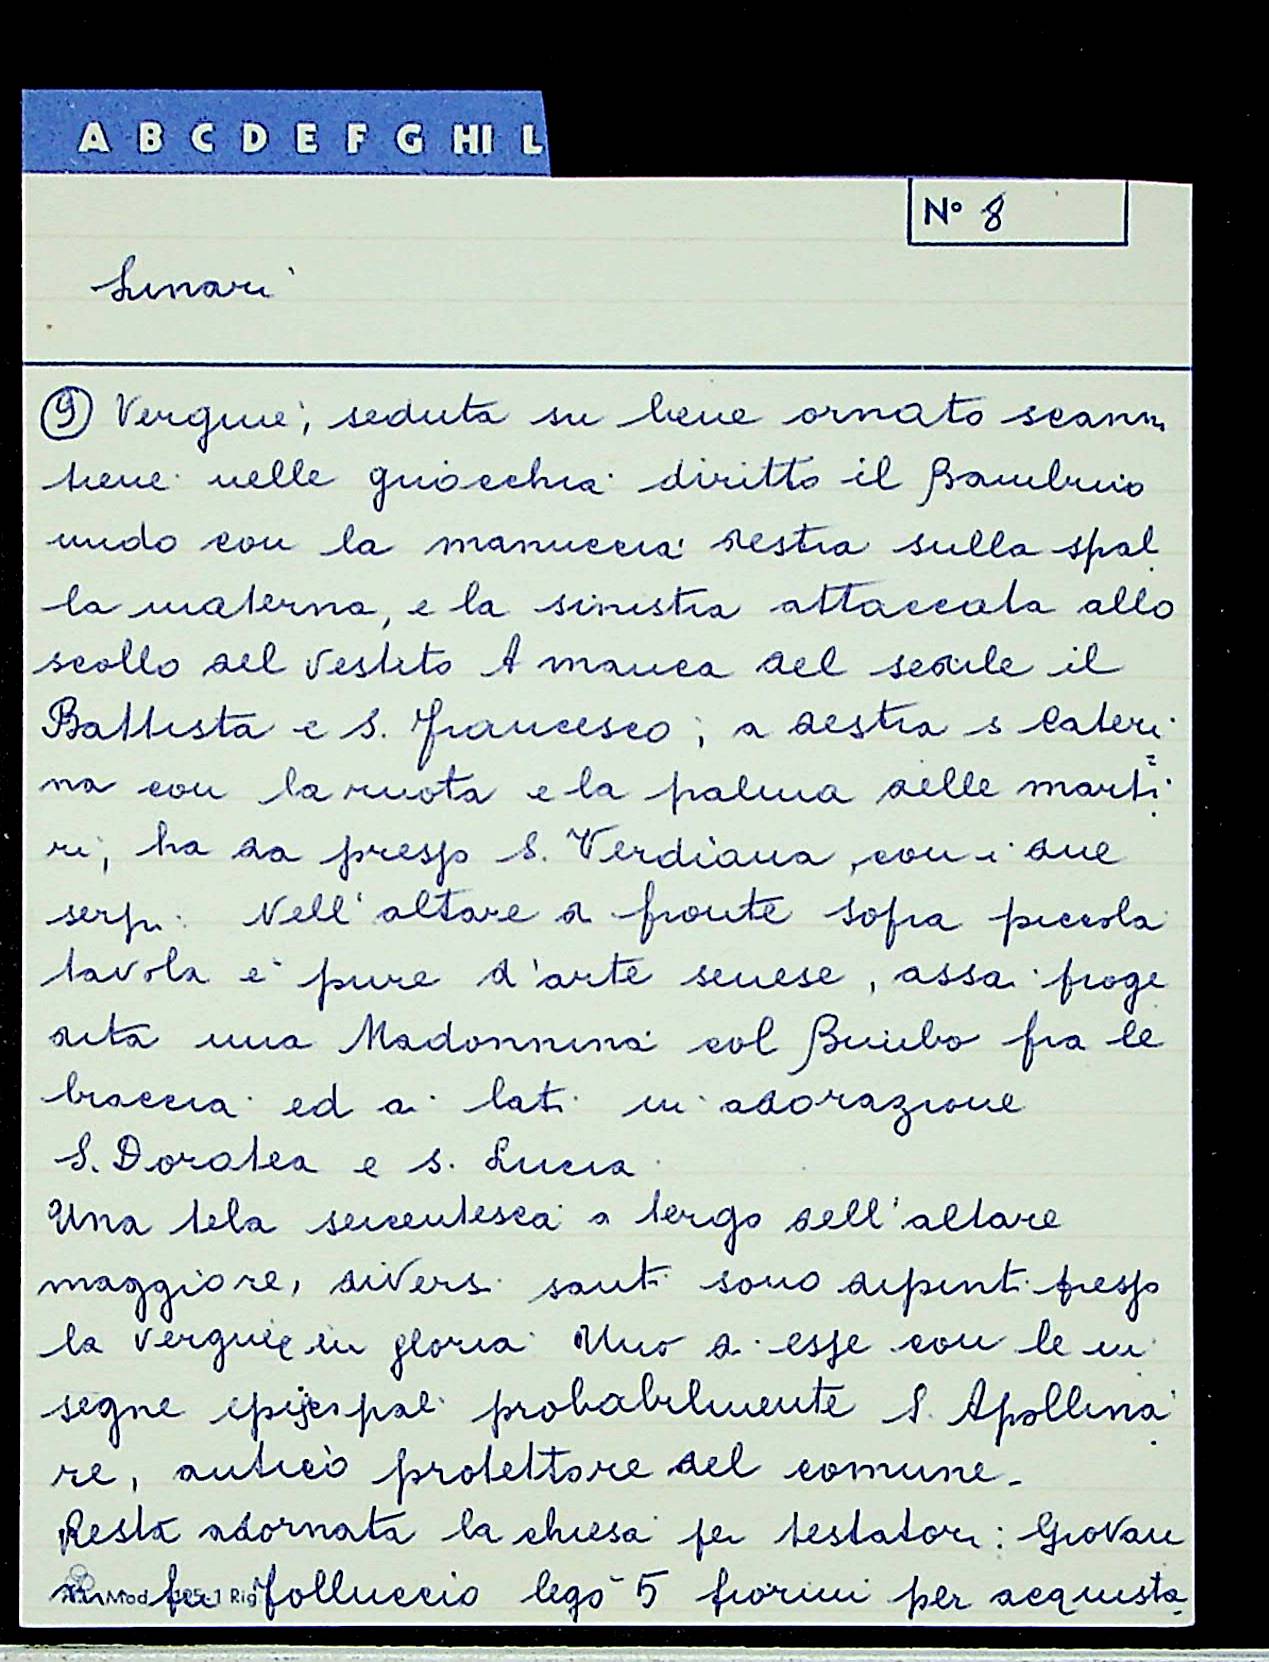 A B C D E F G HI L
N° 8
Lunari
⑨ Vergine, seduta su bene ornato scann
tiene nelle ginocchia diritto il Bambino
nudo con la manuccia destra sulla spal
la materna, e la sinistra attaccata allo
scollo del vestito A manca del sedile il
Battista e S. Francesco; a destra s Cateri
na con la ruota e la palma delle marti
ri, ha da presso S. Verdiana, con i due
serpi. Nell'altare di fronte sopra piccola
tavola è pure d'arte senese, assai froge
rita una Madonnina col Bimbo fra le
braccia ed ai lati in adorazione
S. Dorotea e S. Lucia
Una tela seicentesca a tergo dell'altare
maggiore, diversi santi sono dipinti presso
la Vergine in gloria Uno di esse con le in
segne episcopali probabilmente S. Apollina
re, antico protettore del comune.
Resta adornata la chiesa per testatori: Giovan
fu Folluccio legò 5 fiorini per acquista